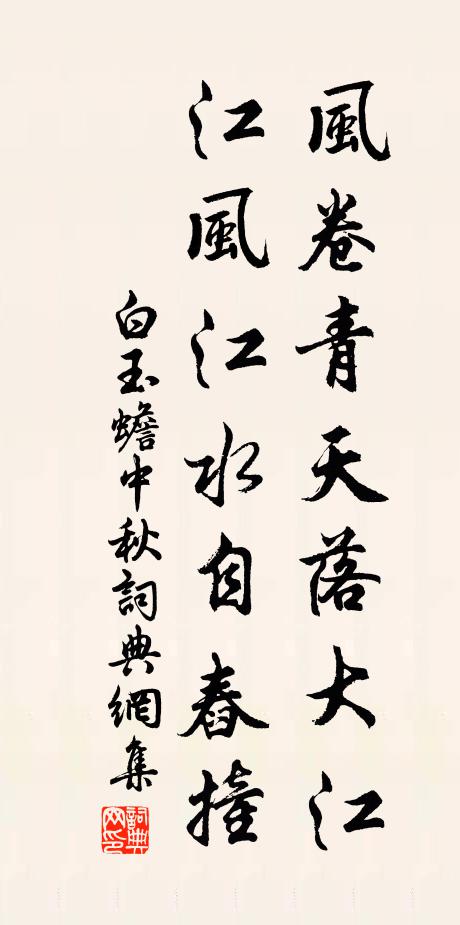 風卷青天落大江
江風江水自舂撞
白玉蟾中秋詞典網集
詞典網印